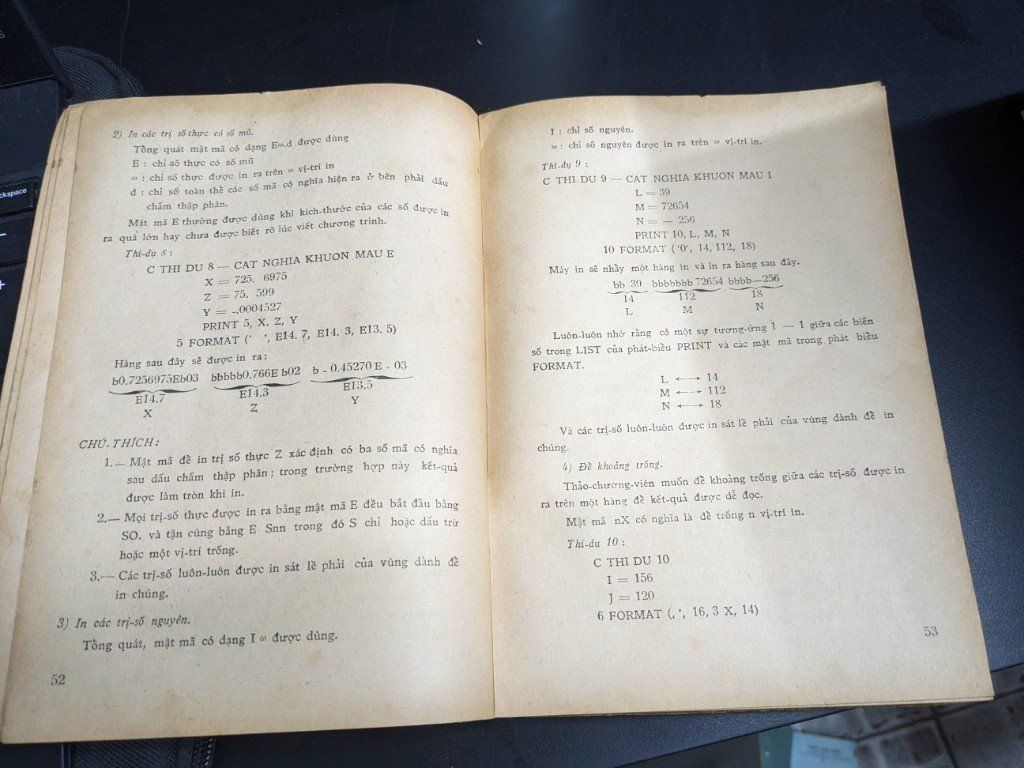 2) In các trị số thực có số mũ.
Tổng quát mật mã có dạng Eω.d được dùng
E : chỉ số thực có số mũ
ω : chỉ số thực được in ra trên ω vị-trí in
d : chỉ số toàn thể các số mã có nghĩa hiện ra ở bên phải dấu
chấm thập phân.
Mật mã E thường được dùng khi kích-thước của các số được in
ra quá lớn hay chưa được biết rõ lúc viết chương trình.
Thí-dụ 8 :
C THI DU 8 — CAT NGHIA KHUON MAU E
X = 725. 6975
Z = 75. 599
Y = -.0004527
PRINT 5, X, Z, Y
5 FORMAT (' ', E14. 7, E14. 3, E13. 5)
Hàng sau đây sẽ được in ra :
b0.7256975Eb03 bbbbb0.766E b02 b - 0.45270 E - 03
E14.7 E14.3 E13.5
X Z Y
CHÚ-THÍCH :
1.— Mật mã để in trị số thực Z xác định có ba số mã có nghĩa
sau dấu chấm thập phân ; trong trường hợp này kết-quả
được làm tròn khi in.
2.— Mọi trị-số thực được in ra bằng mật mã E đều bắt đầu bằng
SO. và tận cùng bằng E Snn trong đó S chỉ hoặc dấu trừ
hoặc một vị-trí trống.
3.— Các trị-số luôn-luôn được in sát lề phải của vùng dành để
in chúng.
3) In các trị-số nguyên.
Tổng quát, mật mã có dạng I ω được dùng.
52
I : chỉ số nguyên.
ω : chỉ số nguyên được in ra trên ω vị-trí in.
Thí-dụ 9 :
C THI DU 9 — CAT NGHIA KHUON MAU I
L = 39
M = 72654
N = — 256
PRINT 10, L, M, N
10 FORMAT ('0', 14, 112, 18)
Máy in sẽ nhảy một hàng in và in ra hàng sau đây.
bb 39 bbbbbbb 72654 bbbb—256
14 112 18
L M N
Luôn-luôn nhớ rằng có một sự tương-ứng 1 — 1 giữa các biến
số trong LIST của phát-biểu PRINT và các mật mã trong phát biểu
FORMAT.
L ←→ 14
M ←→ 112
N ←→ 18
Và các trị-số luôn-luôn được in sát lề phải của vùng dành để in
chúng.
4) Để khoảng trống.
Thảo-chương-viên muốn để khoảng trống giữa các trị-số được in
ra trên một hàng để kết-quả được dễ đọc.
Mật mã nX có nghĩa là để trống n vị-trí in.
Thí-dụ 10 :
C THI DU 10
I = 156
J = 120
6 FORMAT (, ', 16, 3 X, 14)
53